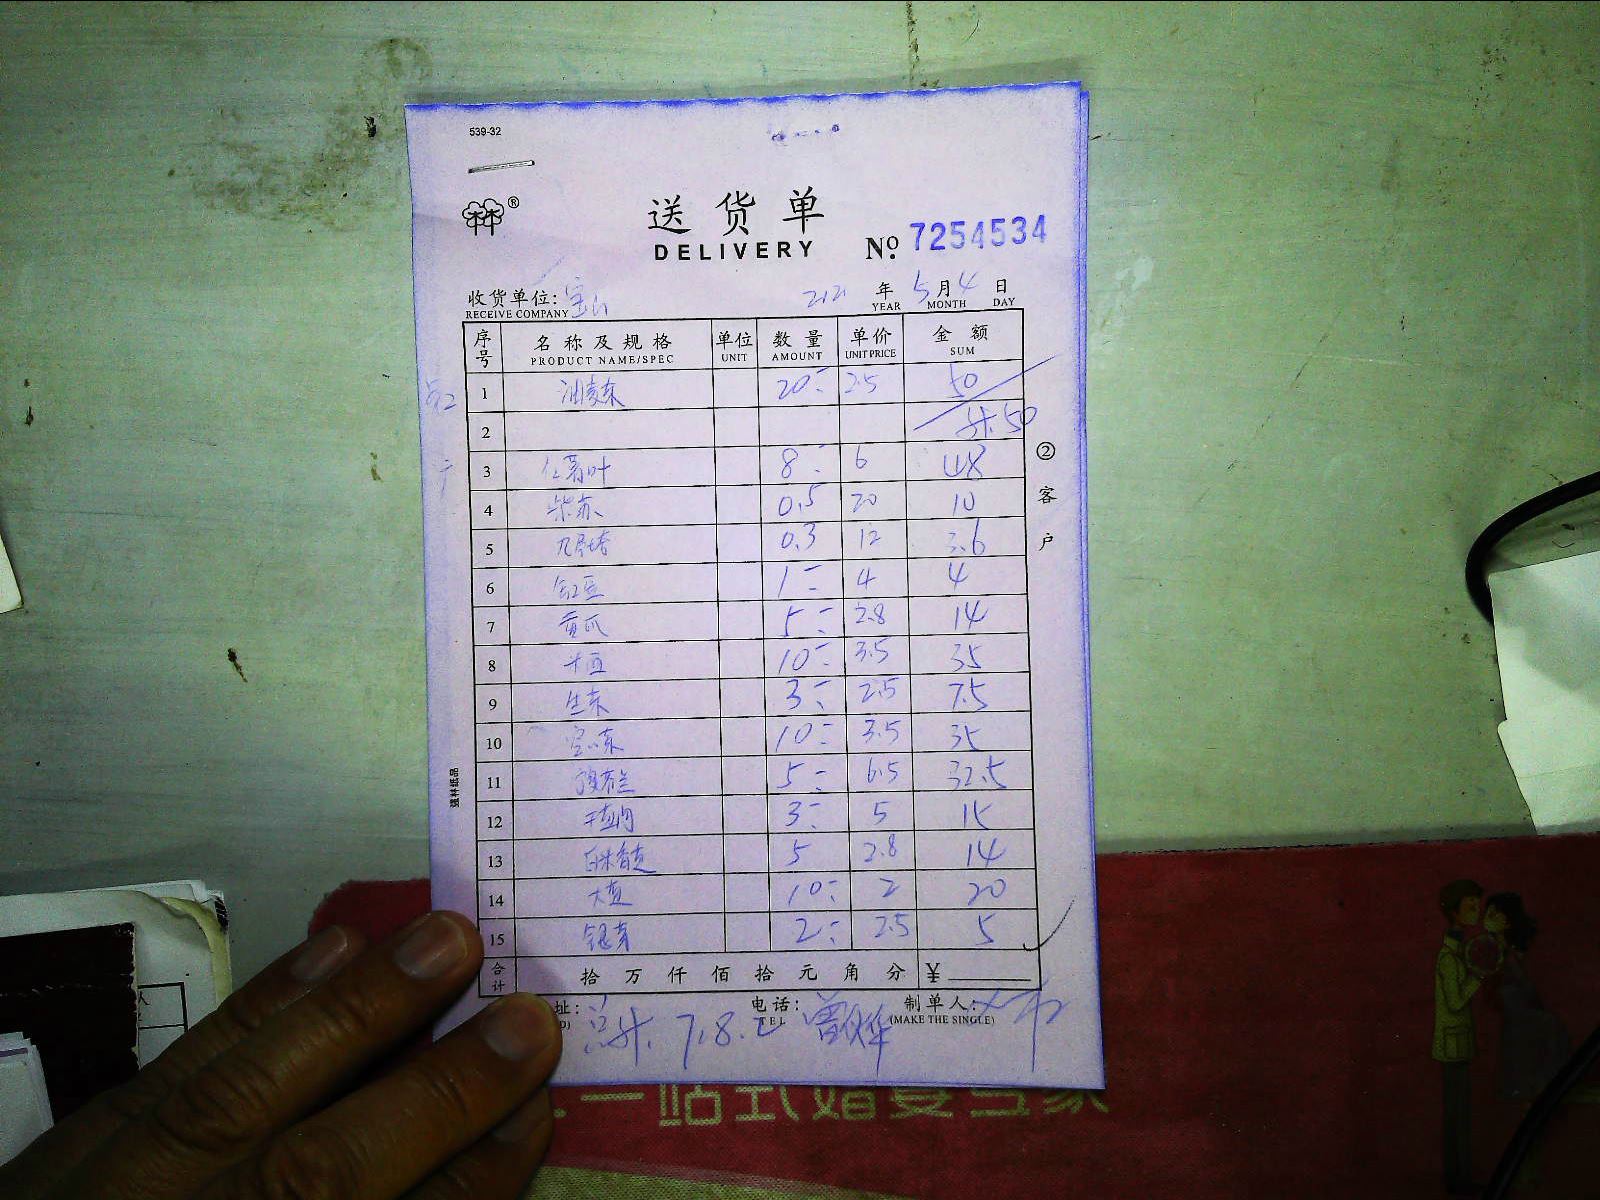 539-32
®
送货单
DELIVERY
№ 7254534
收货单位: 宝山 年 5月4日
RECEIVE COMPANY YEAR MONTH DAY
序号 名称及规格 单位 数量 单价 金额
PRODUCT NAME/SPEC UNIT AMOUNT UNIT PRICE SUM
1 油麦菜 20 2.5 50
2 共50
3 红薯叶 8 6 48
4 紫苏 0.5 20 10
5 九层塔 0.3 12 3.6
6 豆 1 4 4
7 黄瓜 5 2.8 14
8 10 3.5 35
9 生菜 3 2.5 7.5
10 空心菜 10 3.5 35
11 5 6.5 32.5
12 3 5 15
13 5 2.8 14
14 大 10 2 20
15 银芽 2 2.5 5
合计 拾万仟佰拾元角分 ¥
址: 电话: 制单人:
TEL (MAKE THE SINGLE)
②客户
强林纸品
一站式婚宴专家